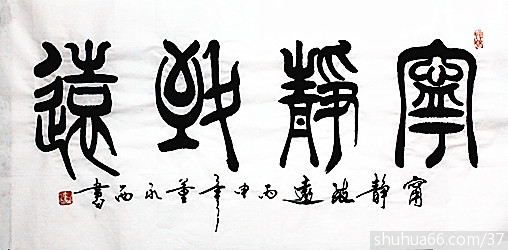 寧靜致遠
甯靜致遠丙申年董永西書
shuhua66.com/37